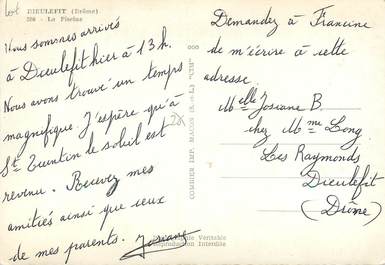 DIEULEFIT (Drôme)
La Piscine
Nous sommes arrivés
à Dieulefit hier à 13h.
Nous avons trouvé un temps
magnifique. J'espère qu'à
St Quentin le soleil est
revenu. Recevez mes
amitiés ainsi que ceux
de mes parents. Josiane
COMBIER IMP. MACON (S.-et-L.) "CIM"
Reproduction Interdite
Demandez à Francine
de m'écrire à cette
adresse
Melle Josiane B.
chez Mme Long
Les Raymonds
Dieulefit
(Drôme)